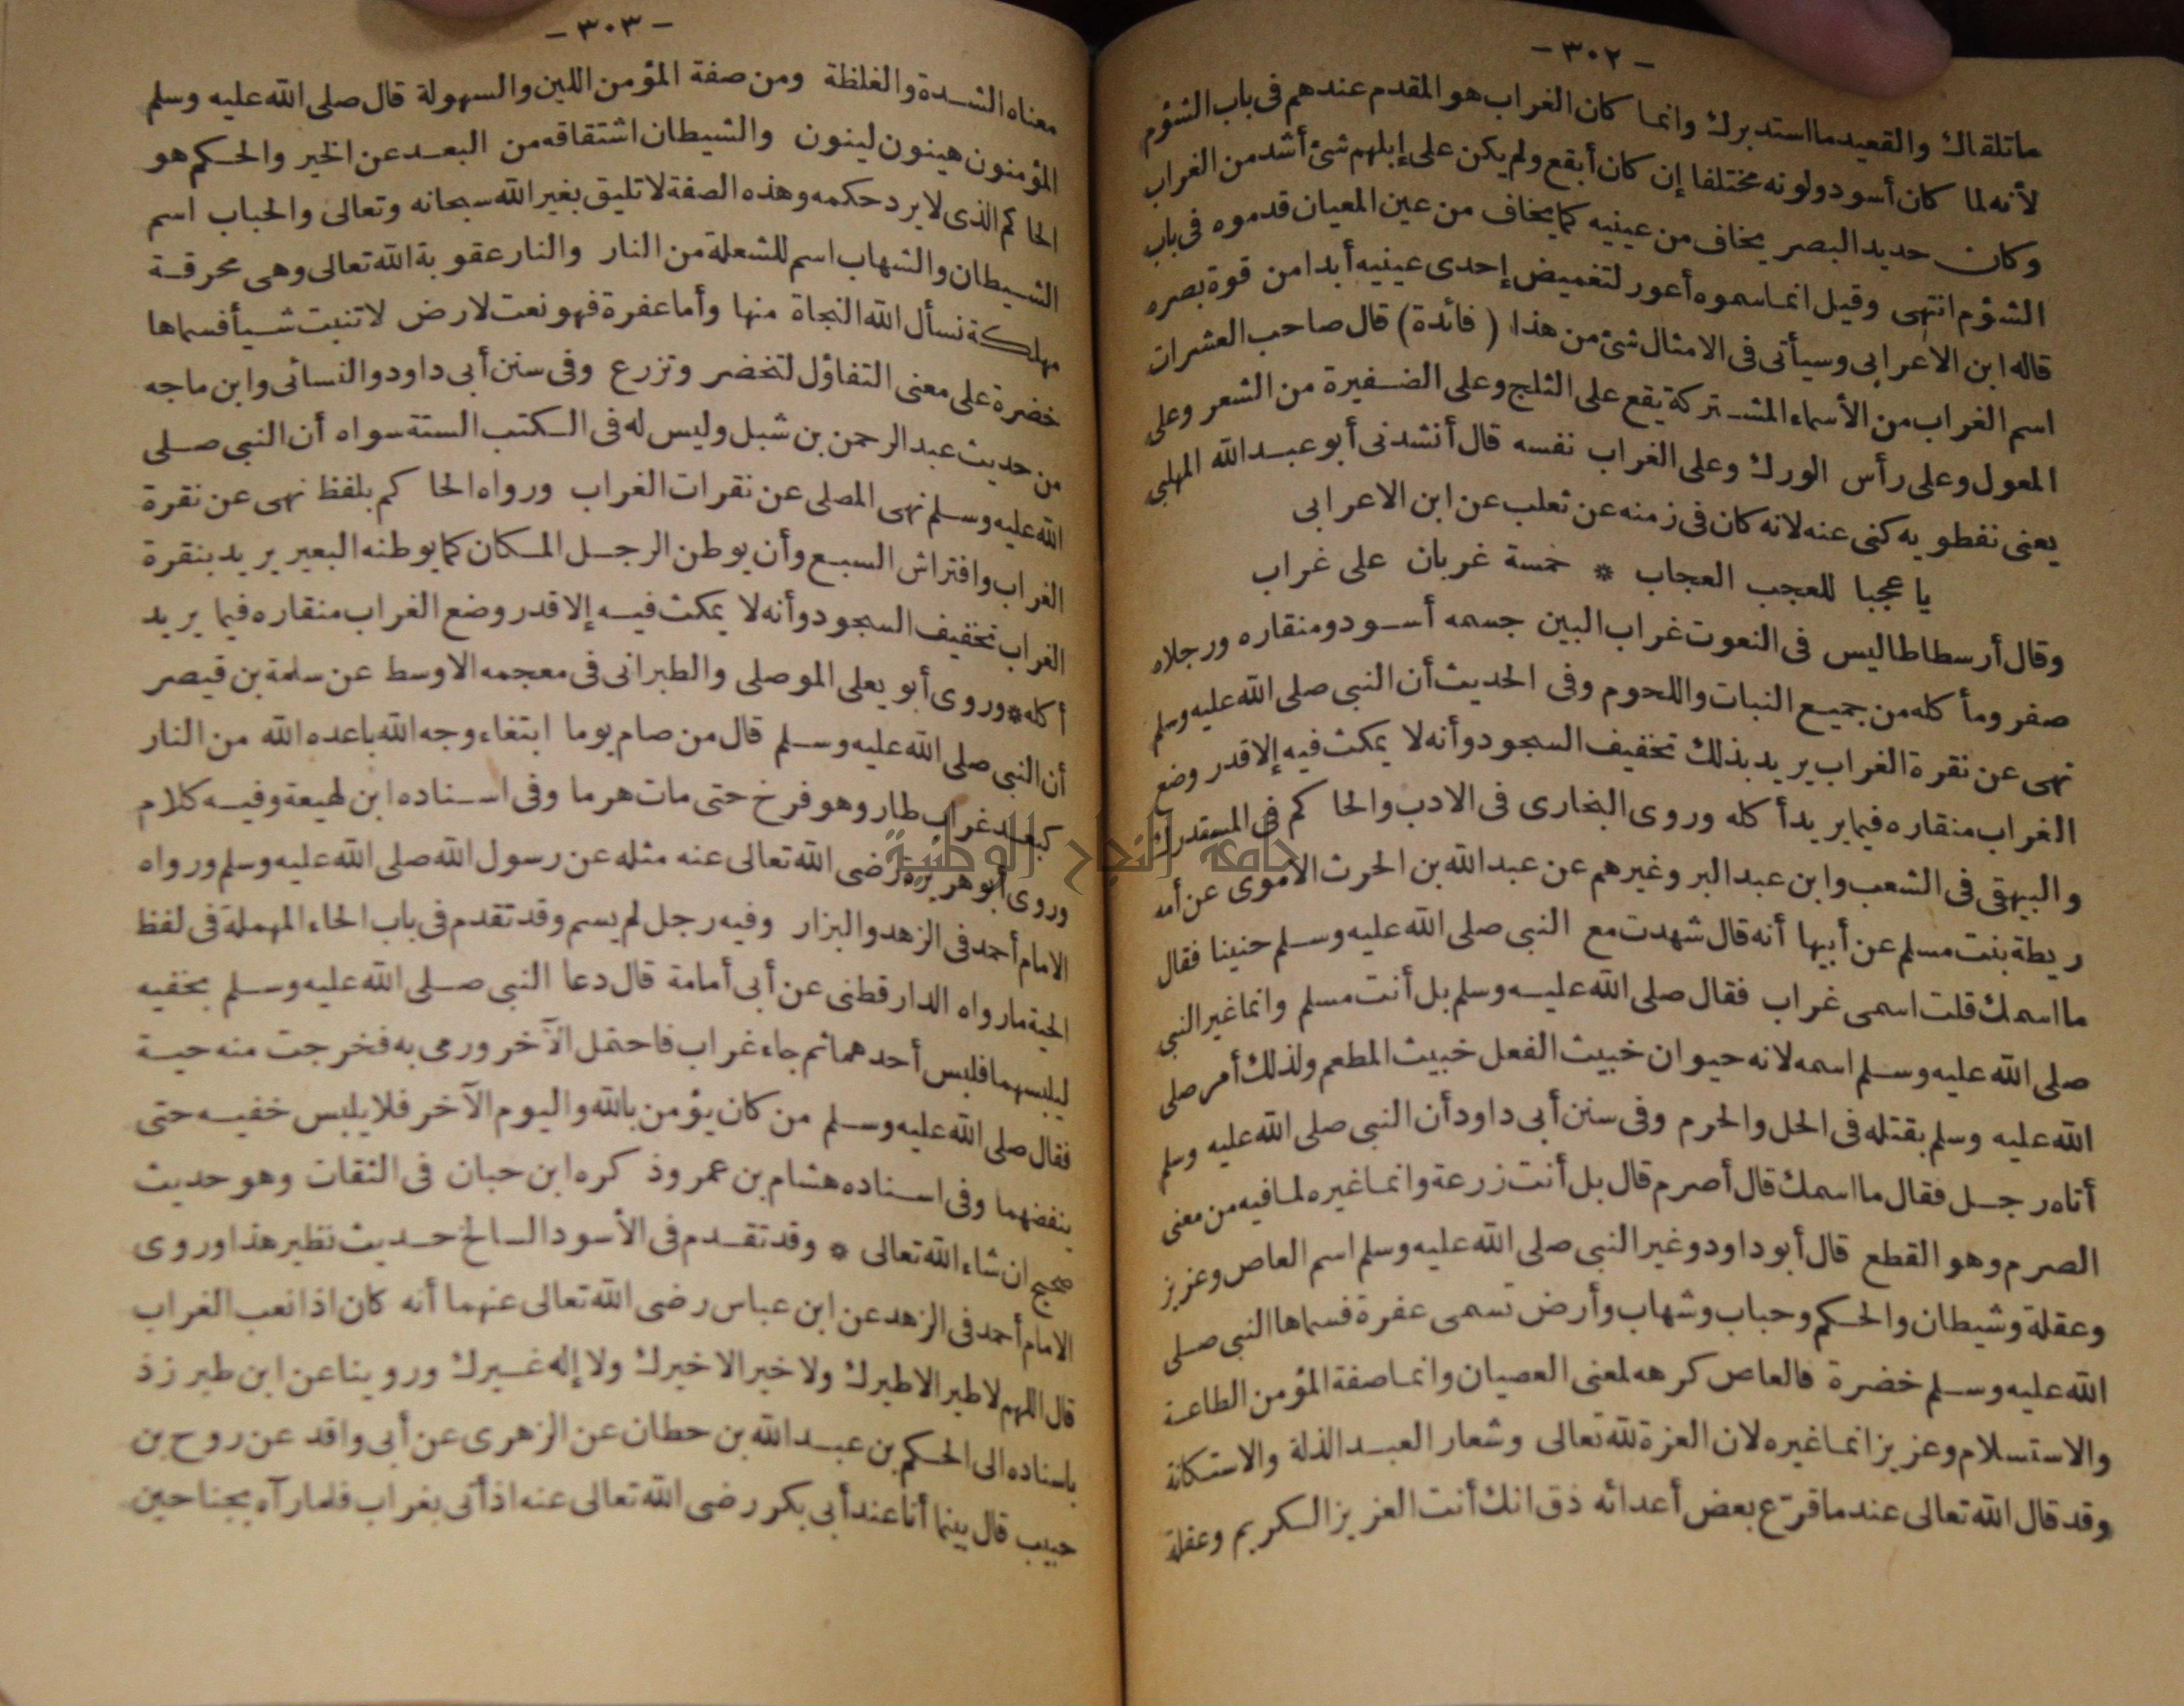 - ٣٠٢ -
ماتلقاك والقعيد ما استدبرك وانما كان الغراب هو المقدم عندهم فى باب الشؤم
لأنه لما كان أسود ولونه مختلفا إن كان أبقع ولم يكن على إبلهم شئ أشد من الغراب
وكان حديد البصر يخاف من عينيه كما يخاف من عين المعيان قدموه فى باب
الشؤم انتهى وقيل انما سموه أعور لتغميض إحدى عينيه أبدا من قوة بصره
قاله ابن الاعرابى وسيأتى فى الامثال شئ من هذا ( فائدة ) قال صاحب العشرات
اسم الغراب من الأسماء المشتركة يقع على الثلج وعلى الضفيرة من الشعر وعلى
المعول وعلى رأس الورك وعلى الغراب نفسه قال أنشدنى أبو عبد الله المهلبى
يعنى نفطويه كنى عنه لانه كان فى زمنه عن ثعلب عن ابن الاعرابى
يا عجبا للعجب العجاب * خمسة غربان على غراب
وقال أرسطاطاليس فى النعوت غراب البين جسمه أسود ومنقاره ورجلاه
صفر ومأكله من جميع النبات واللحوم وفى الحديث أن النبى صلى الله عليه وسلم
نهى عن نقرة الغراب يريد بذلك تخفيف السجود وأنه لا يمكث فيه إلا قدر وضع
الغراب منقاره فيما يريد أكله وروى البخارى فى الادب والحاكم فى المستدرك
والبيهقى فى الشعب وابن عبد البر وغيرهم عن عبد الله بن الحرث الاموى عن أمه
ريطة بنت مسلم عن أبيها أنه قال شهدت مع النبى صلى الله عليه وسلم حنينا فقال
ما اسمك قلت اسمى غراب فقال صلى الله عليه وسلم بل أنت مسلم وانما غير النبى
صلى الله عليه وسلم اسمه لانه حيوان خبيث الفعل خبيث المطعم ولذلك أمر صلى
الله عليه وسلم بقتله فى الحل والحرم وفى سنن أبى داود أن النبى صلى الله عليه وسلم
أتاه رجل فقال ما اسمك قال أصرم قال بل أنت زرعة وانما غيره لما فيه من معنى
الصرم وهو القطع قال أبو داود وغير النبى صلى الله عليه وسلم اسم العاص وعزيز
وعقلة وشيطان والحكم وحباب وشهاب وأرض تسمى عفرة فسماها النبى صلى
الله عليه وسلم خضرة فالعاص كرهه لمعنى العصيان وانما صفة المؤمن الطاعة
والاستسلام وعزيز انما غيره لان العزة لله تعالى وشعار العبد الذلة والاستكانة
وقد قال الله تعالى عند ما قرّع بعض أعدائه ذق انك أنت العزيز الكريم وعقلة
- ٣٠٣ -
معناه الشدة والغلظة ومن صفة المؤمن اللين والسهولة قال صلى الله عليه وسلم
المؤمنون هينون لينون والشيطان اشتقاقه من البعد عن الخير والحكم هو
الحاكم الذى لا يرد حكمه وهذه الصفة لا تليق بغير الله سبحانه وتعالى والحباب اسم
الشيطان والشهاب اسم للشعلة من النار والنار عقوبة الله تعالى وهى محرقة
مهلكة نسأل الله النجاة منها وأما عفرة فهو نعت لارض لا تنبت شيأ فسماها
خضرة على معنى التفاؤل لتخضر وتزرع وفى سنن أبى داود والنسائى وابن ماجه
من حديث عبد الرحمن بن شبل وليس له فى الكتب الستة سواه أن النبى صلى
الله عليه وسلم نهى المصلى عن نقرات الغراب ورواه الحاكم بلفظ نهى عن نقرة
الغراب وافتراش السبع وأن يوطن الرجل المكان كما يوطنه البعير يريد بنقرة
الغراب تخفيف السجود وأنه لا يمكث فيه إلا قدر وضع الغراب منقاره فيما يريد
أكله * وروى أبو يعلى الموصلى والطبرانى فى معجمه الاوسط عن سلمة بن قيصر
أن النبى صلى الله عليه وسلم قال من صام يوما ابتغاء وجه الله باعده الله من النار
كبعد غراب طار وهو فرخ حتى مات هرما وفى اسناده ابن لهيعة وفيه كلام
وروى أبو هريرة رضى الله تعالى عنه مثله عن رسول الله صلى الله عليه وسلم ورواه
الامام أحمد فى الزهد والبزار وفيه رجل لم يسم وقد تقدم فى باب الحاء المهملة فى لفظ
الحية مارواه الدارقطنى عن أبى أمامة قال دعا النبى صلى الله عليه وسلم بخفيه
ليلبسهما فلبس أحدهما ثم جاء غراب فاحتمل الآخر ورمى به فخرجت منه حية
فقال صلى الله عليه وسلم من كان يؤمن بالله واليوم الآخر فلا يلبس خفيه حتى
ينفضهما وفى اسناده هشام بن عمر وذكره ابن حبان فى الثقات وهو حديث
صحيح ان شاء الله تعالى * وقد تقدم فى الأسود السالخ حديث نظير هذا وروى
الامام أحمد فى الزهد عن ابن عباس رضى الله تعالى عنهما أنه كان اذا نعب الغراب
قال اللهم لا طير الا طيرك ولا خير الا خيرك ولا إله غيرك وروينا عن ابن طبرزذ
باسناده الى الحكم بن عبد الله بن حطان عن الزهرى عن أبى واقد عن روح بن
حبيب قال بينما أنا عند أبى بكر رضى الله تعالى عنه اذ أتى بغراب فلما رآه بجناحين
جامعة النجاح الوطنية